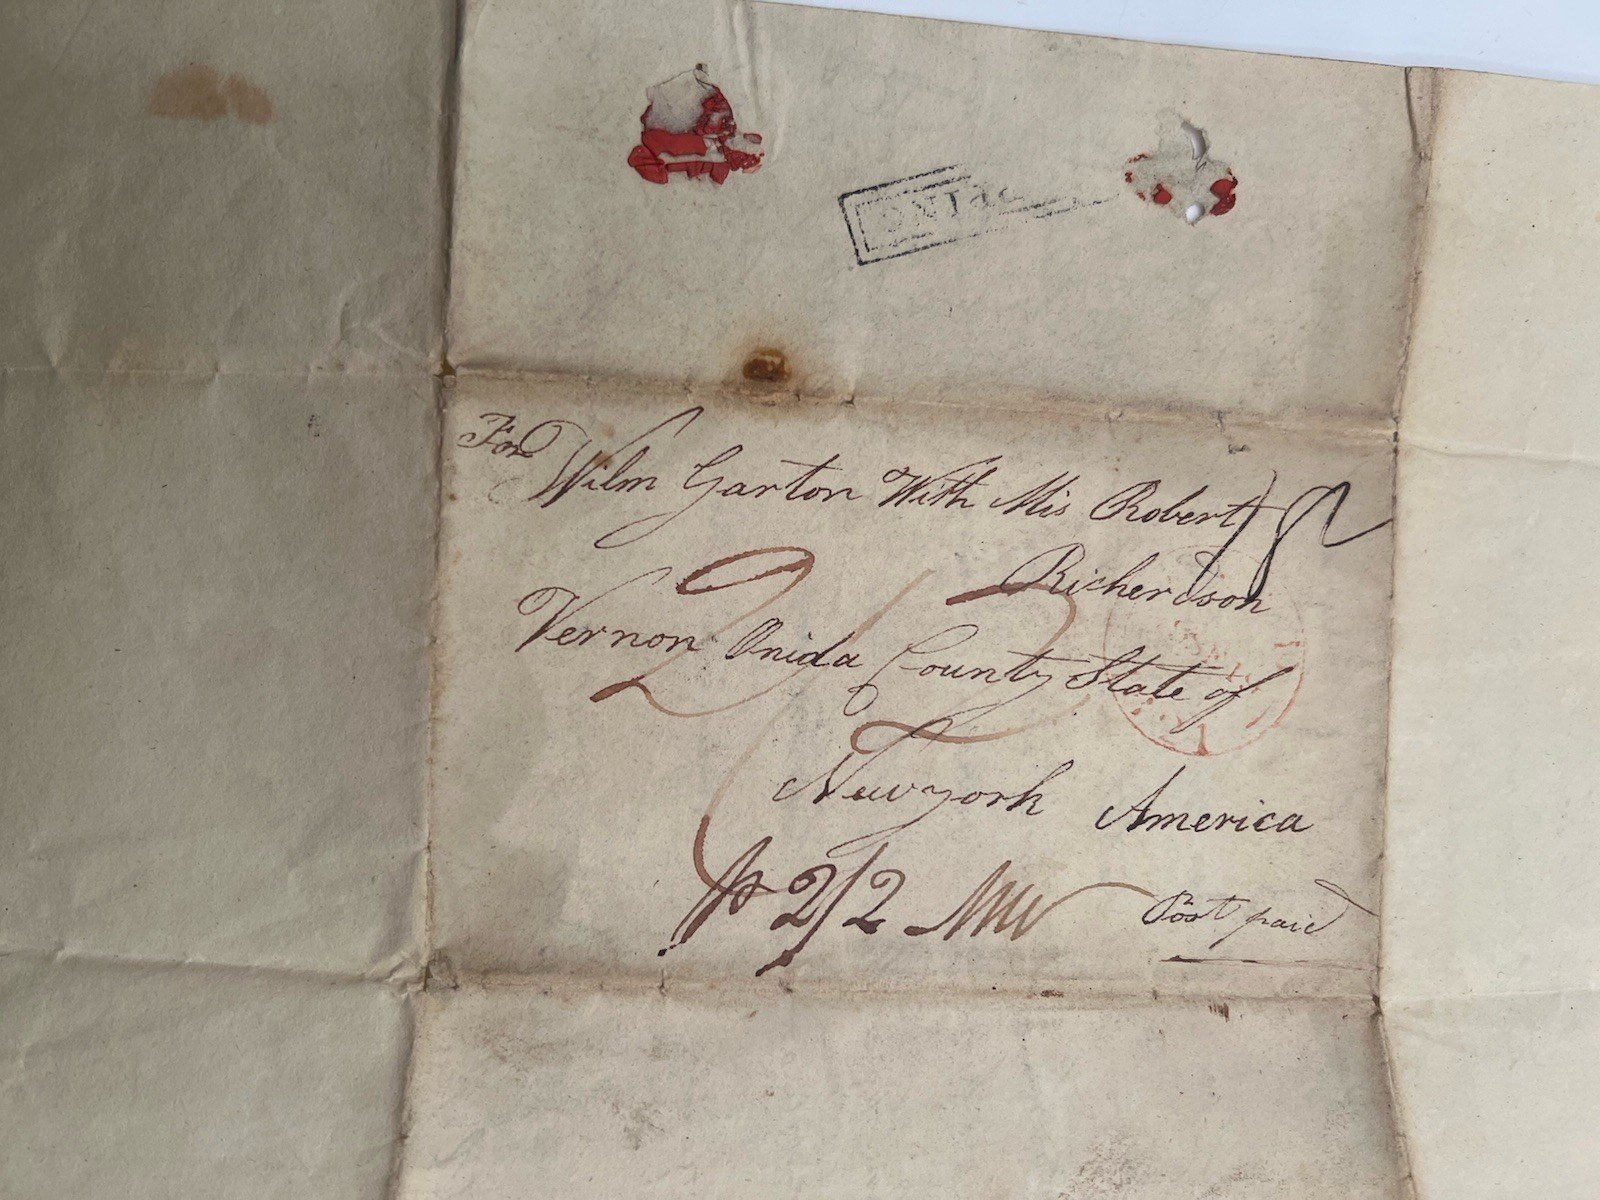 For
Wilm Garton With Mis Robert
Richerdson
Vernon Onida County State of
Newyork America
p 2/2
Post paid